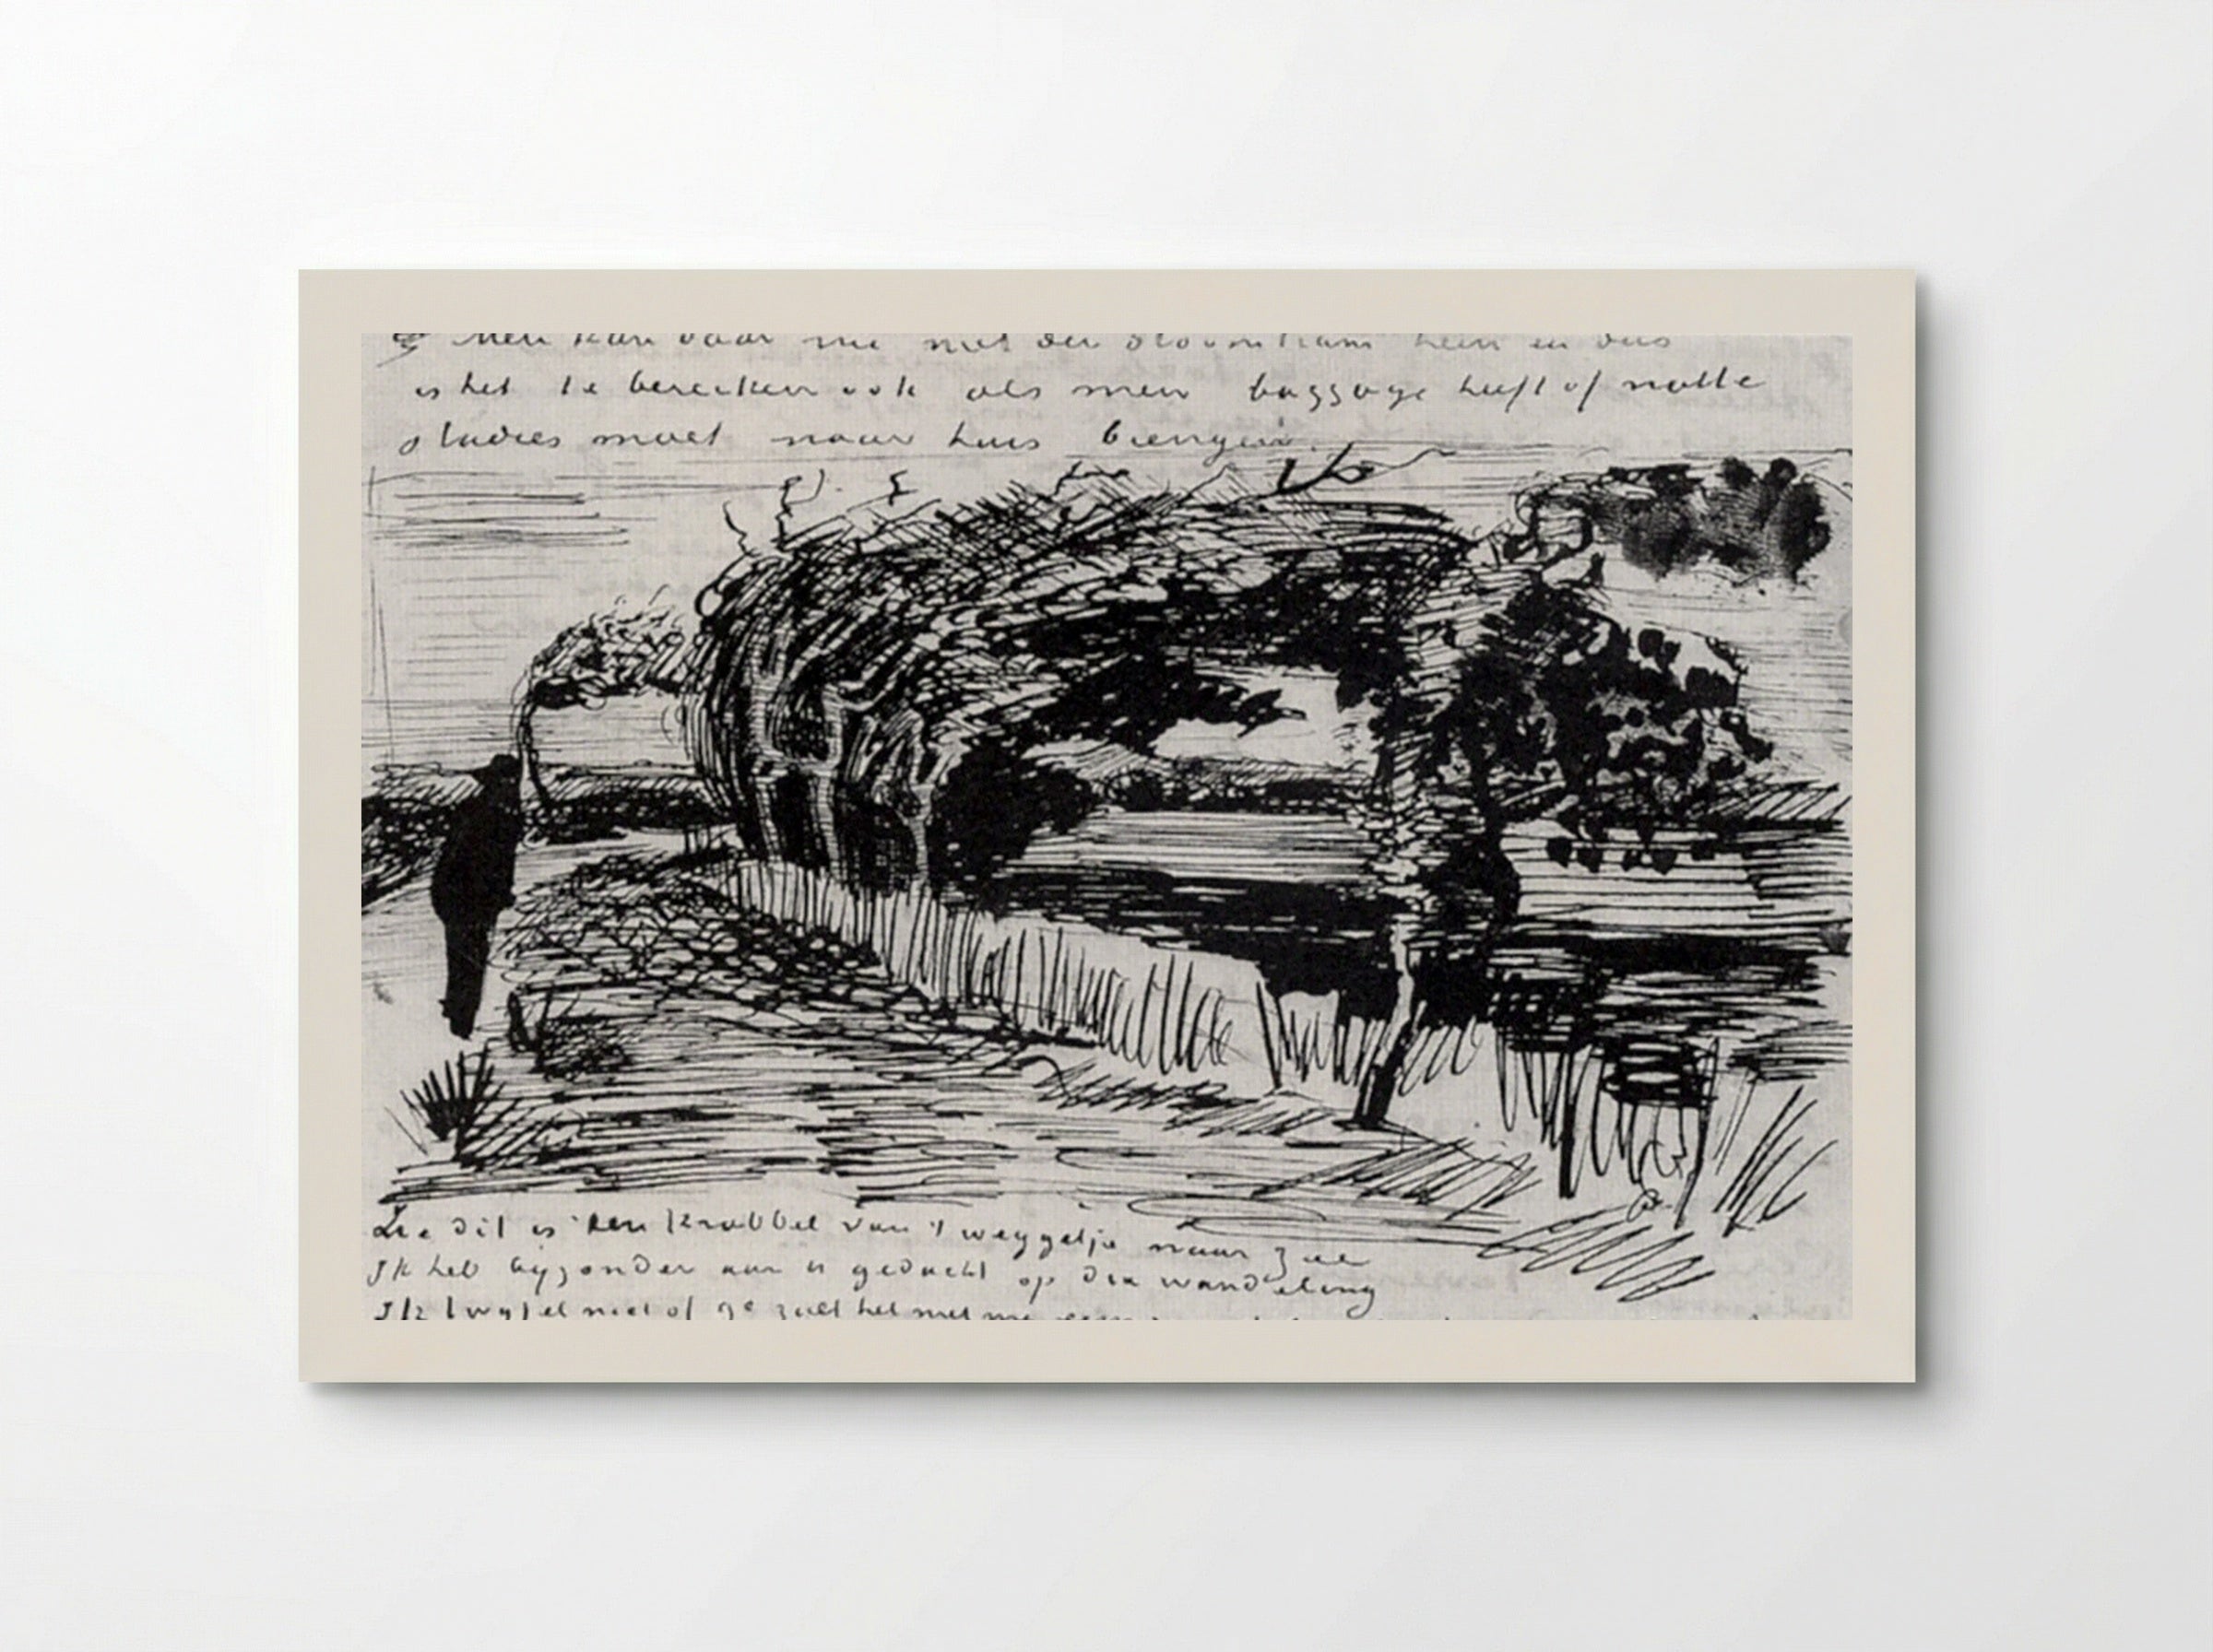 Men kan daar nu met den stoomtram heen en dus
is het te bereiken ook als men baggage heeft of natte
studies moet naar huis brengen.
Zie dit is een krabbel van 't weggetje naar zee
Ik heb bijzonder aan U gedacht op die wandeling
Ik twijfel niet of ge zult het met me eens